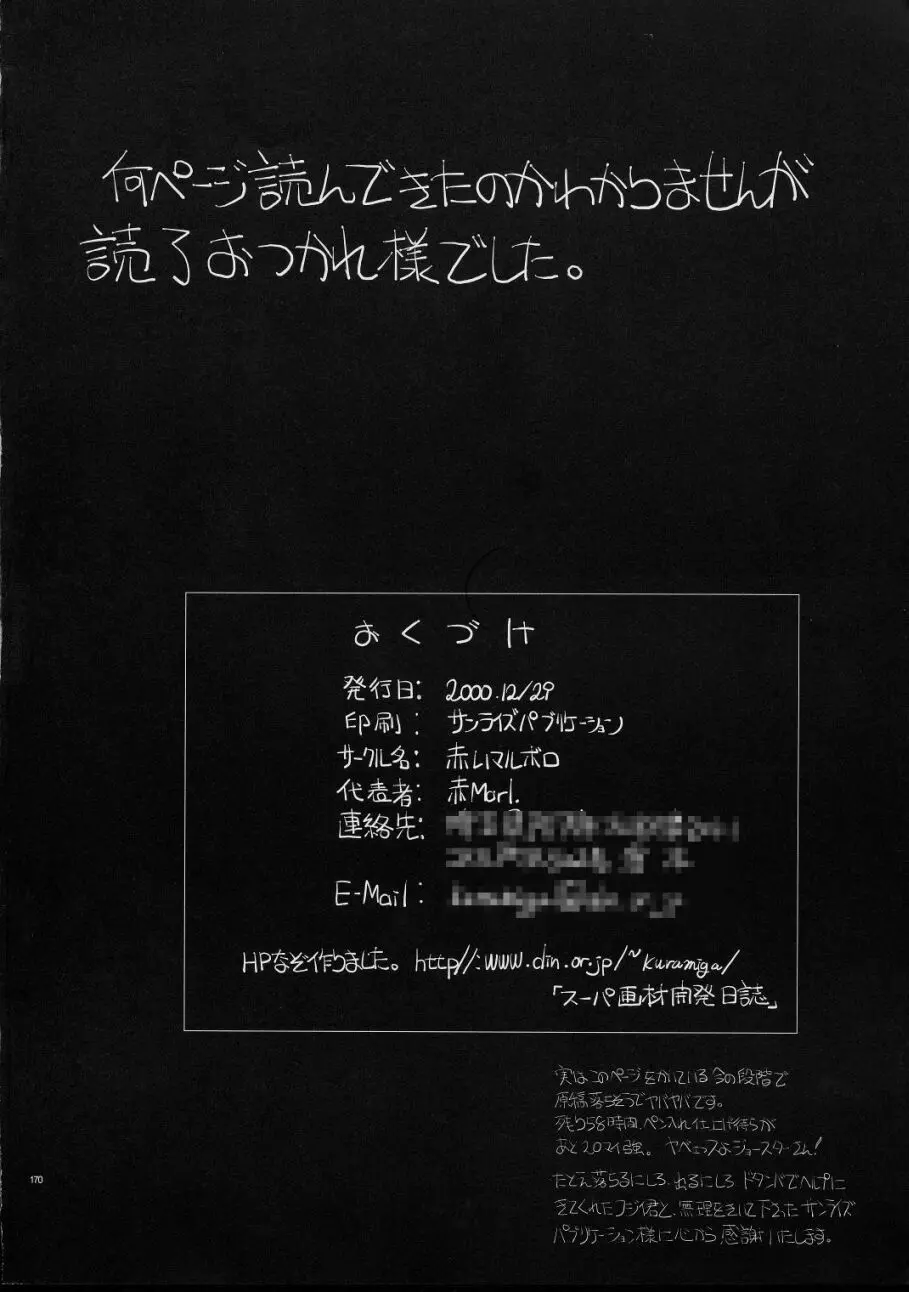 何ページ読んできたのかわかりませんが
読了おつかれ様でした。
おくづけ
発行日: 2000.12/29
印刷: サンライズパブリケーション
サークル名: 赤いマルボロ
代表者: 赤Marl.
連絡先:
E-Mail:
HPなぞ作りました。http//:www.din.or.jp/~kuramiga/
「スーパー画材開発日誌」
実はこのページをかいている今の段階で
原稿落ちそうでヤバヤバです。
残り58時間、ペン入れ仕上げ待ちが
あと20マイ強。ヤベェっスよジョースターさん!
たとえ落ちるにしろ、出るにしろ ドタンバでヘルプに
きてくれたコジイ君と、無理をきいて下さったサンライズ
パブリケーション様に心から感謝いたします。
170